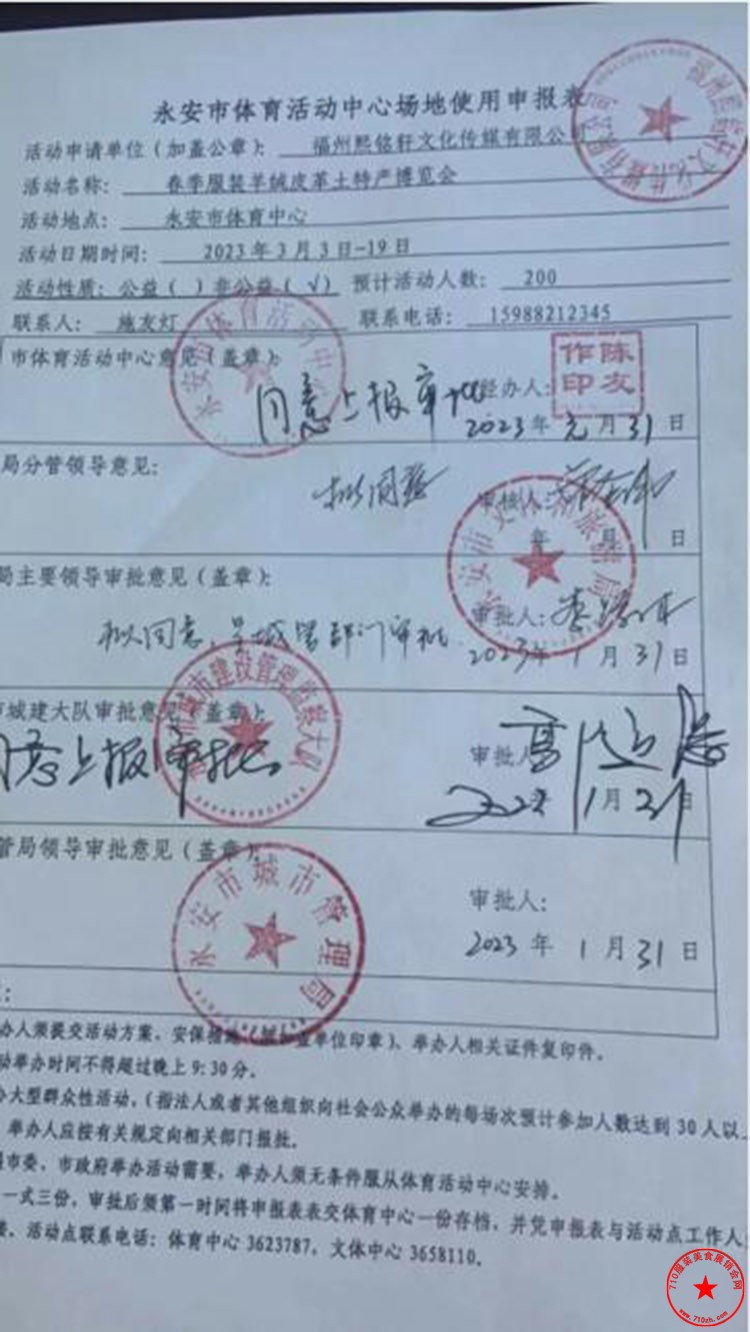 永安市体育活动中心场地使用申报表
活动申请单位(加盖公章): 福州熙铭轩文化传媒有限公司
活动名称: 春季服装羊绒皮革土特产博览会
活动地点: 永安市体育中心
活动日期时间: 2023年3月3日-19日
活动性质: 公益( )非公益(√) 预计活动人数: 200
联系人: 施友灯 联系电话: 15988212345
市体育活动中心意见(盖章):
永安市体育活动中心
同意上报审批
经办人:
陈友作印
2023年元月31日
局分管领导意见:
拟同意
审核人:
年 月 日
局主要领导审批意见(盖章):
拟同意,呈城管部门审批
审批人:
2023年1月31日
城建大队审批意见(盖章):
市城市建设管理监察大队
同意上报审批
审批人:
2023年1月31日
管局领导审批意见(盖章):
永安市城市管理局
审批人:
2023年1月31日
办人须提交活动方案、安保措施(须加盖单位印章)、举办人相关证件复印件。
动举办时间不得超过晚上9:30分。
办大型群众性活动,(指法人或者其他组织向社会公众举办的每场次预计参加人数达到30人以
举办人应按有关规定向相关部门报批。
市委、市政府举办活动需要,举办人须无条件服从体育活动中心安持。
一式三份,审批后须第一时间将申报表表交体育中心一份存档,并凭申报表与活动点工作人
活动点联系电话: 体育中心3623787,文体中心3658110。
710服装美食展销会网
www.710zh.com